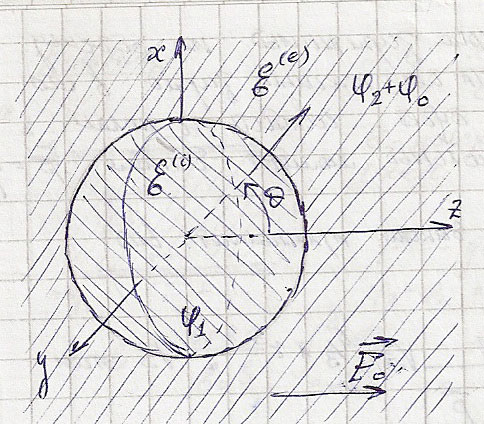 x
ε⁽ᵉ⁾
φ₂+φ₀
ε⁽ⁱ⁾
θ
z
φ₁
y
E₀